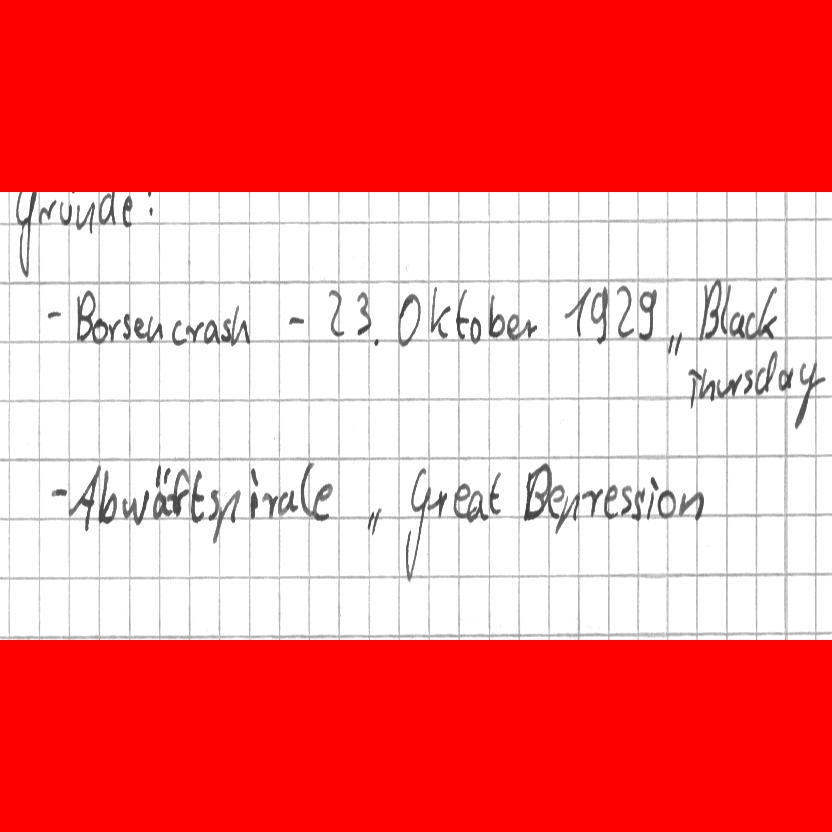 Gründe:
- Borsencrash - 23. Oktober 1929 „ Black
Thursday
- Abwärtspirale „ Great Depression